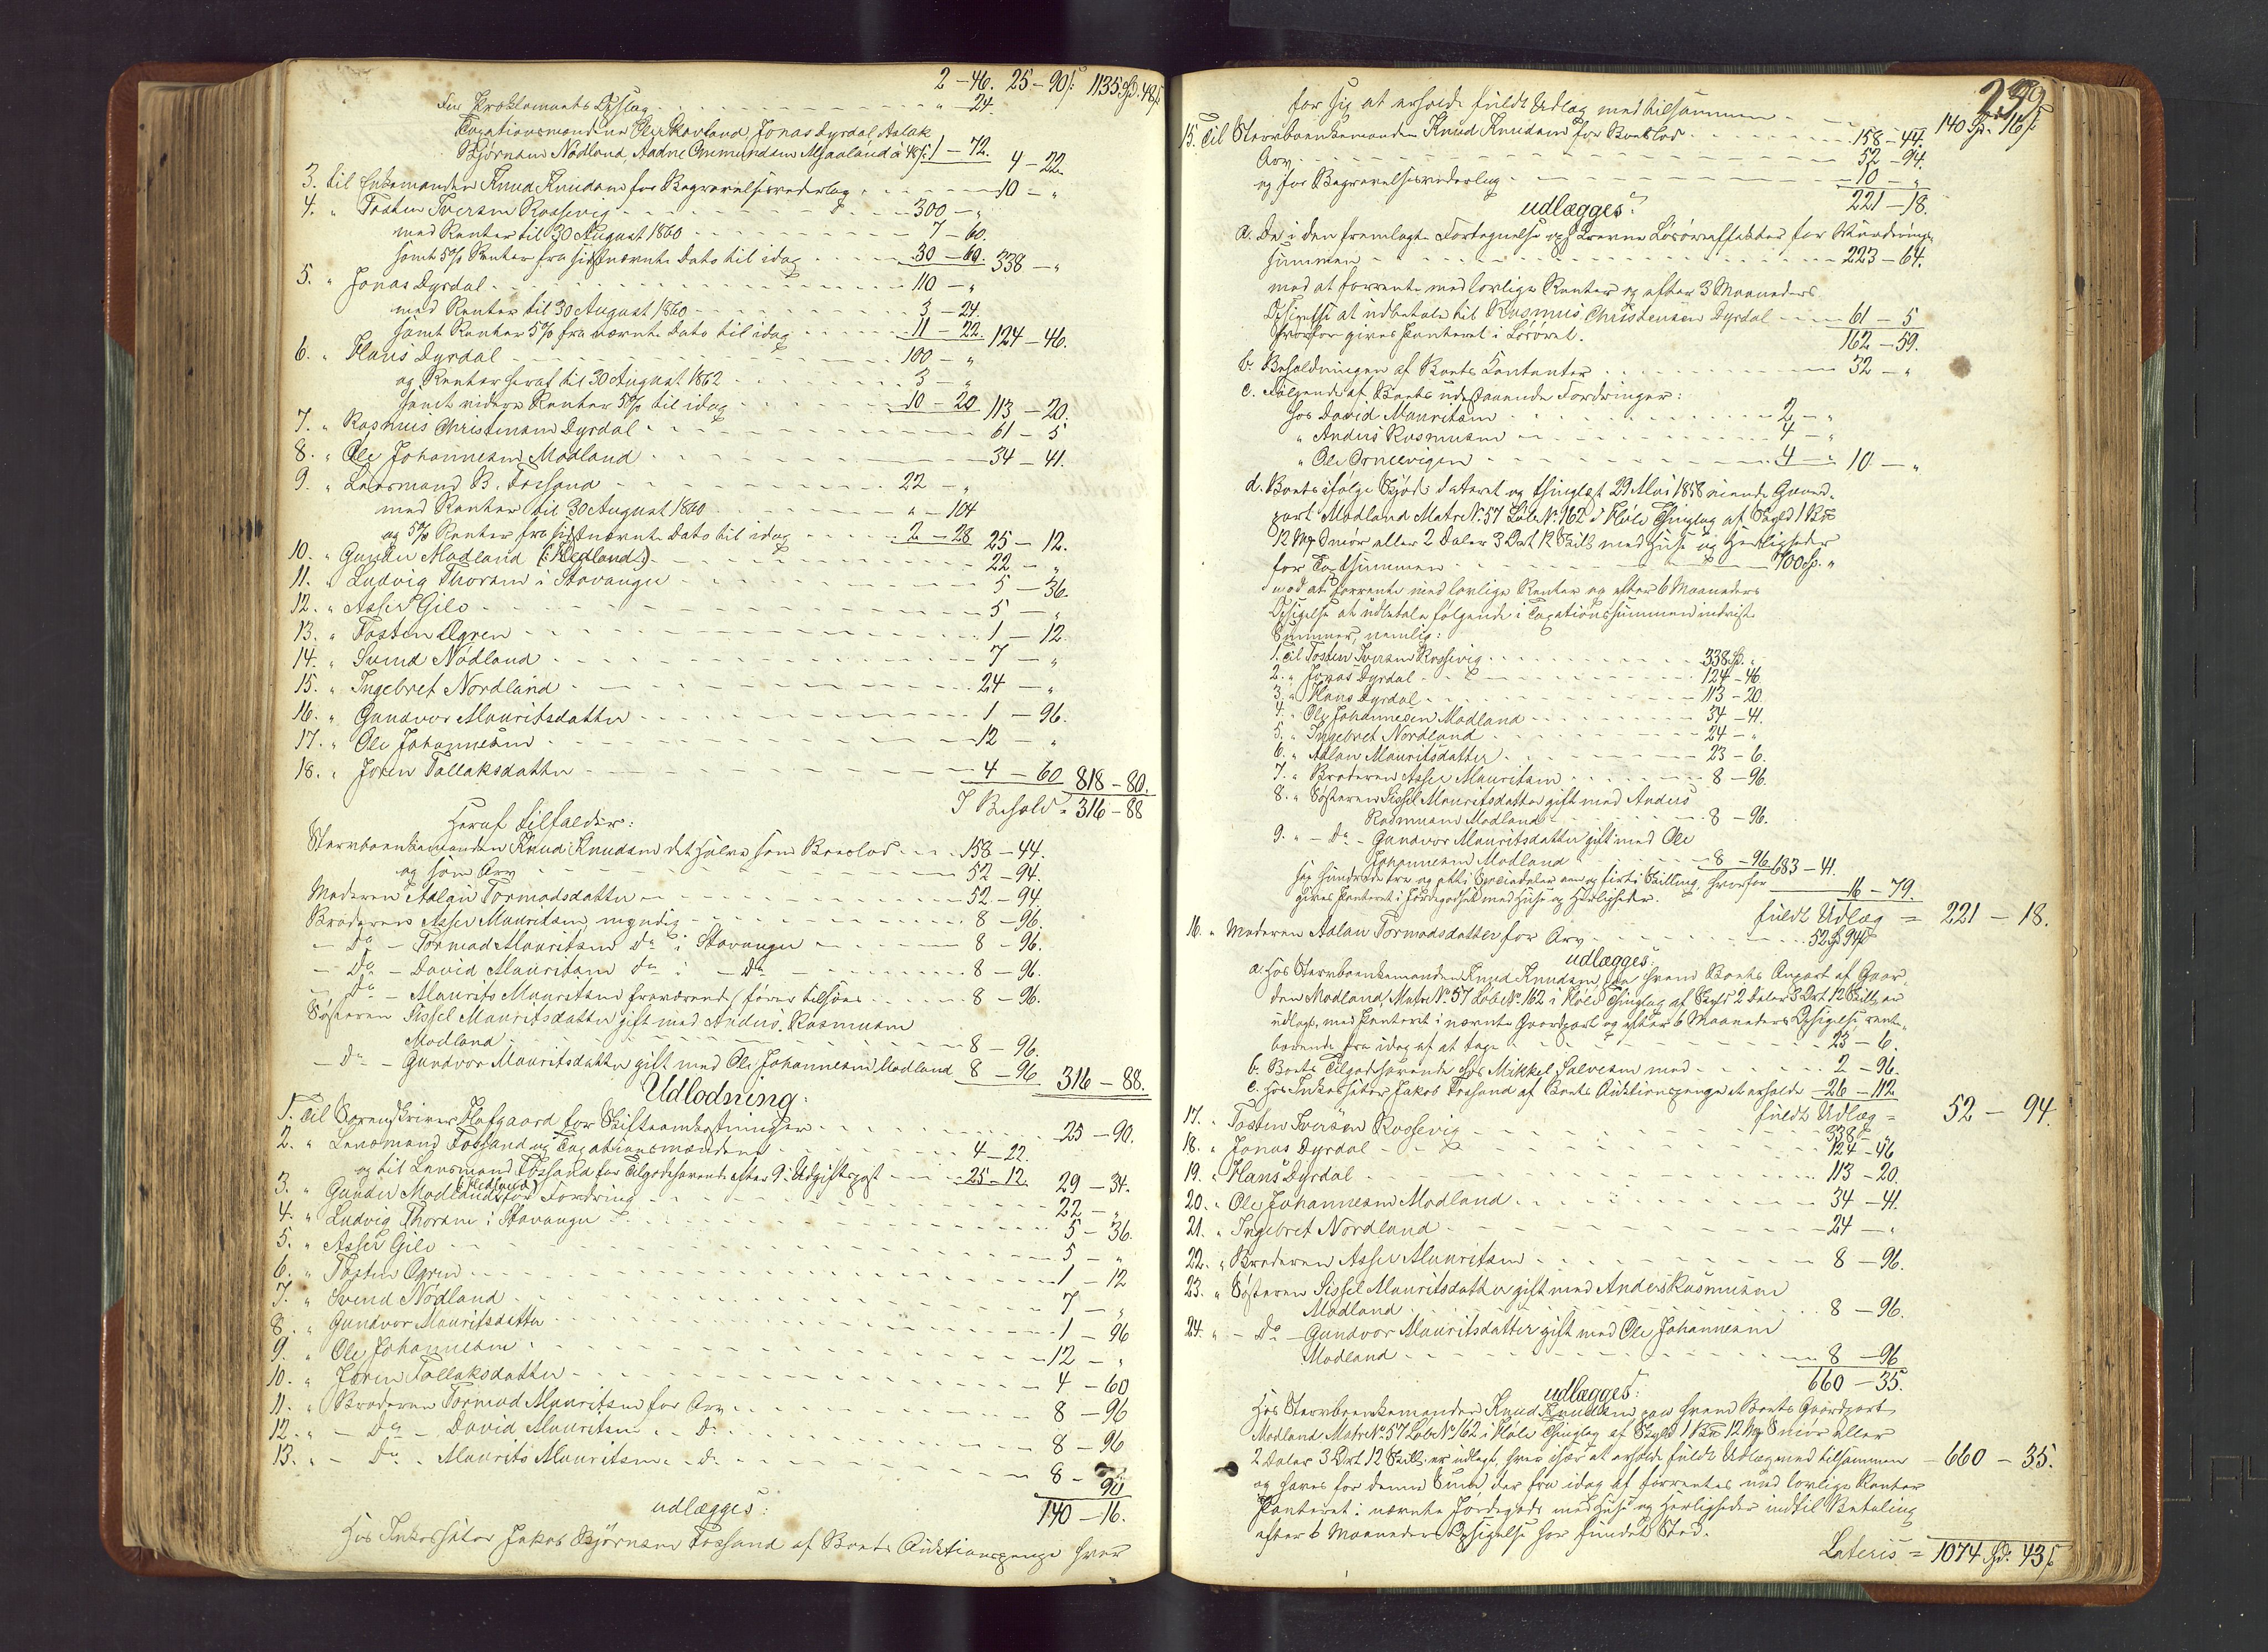 2 - 46. 25 - 90ß. 1135 Spd. 48ß.
For Proklamaets Opslag - - - " 24.
Taxationsmændene Ole Skovland, Jonas Dyrdal, Aslak
Bjørnsen Nödland, Aadne Omundsen Mjaaland à 48ß. 1 - 72. 4 - 22.
3. til Enkemanden Knud Knudsen for Begravelsesvederlag - - - 10 - "
4. " Tosten Iversen Rossevig - - - 300 - "
med Renter til 30 August 1860 - - - 7 - 60.
samt 5% Renter fra sidstnævnte Dato til idag - - - 30 - 60. 338 - "
5. " Jonas Dyrdal - - - 110 - "
med Renter til 30 August 1860 - - - 3 - 24.
samt Renter 5% fra nævnte Dato til idag - - - 11 - 22. 124 - 46.
6. " Hans Dyrdal - - - 100 - "
og Renter heraf til 30 August 1862 - - - 3 - "
samt videre Renter 5% til idag - - - 10 - 20 113 - 20.
7. " Rasmus Christensen Dyrdal - - - 61 - 5
8. " Ole Johannesen Modland - - - 34 - 41.
9. " Lensmand B. Fossand - - - 22 - "
med Renter til 30 August 1860 - - - " - 104
og 5% Renter fra sidstnævnte Dato til idag - - - 2 - 28 25 - 12.
10. " Gunder Modland (: Hedland :) - - - 22 - "
11. " Ludvig Thorsen i Stavanger - - - 5 - 36.
12. " Asser Gilo - - - 5 - "
13. " Tosten Ogren - - - 1 - 12.
14. " Svend Nödland - - - 7 - "
15. " Ingebret Nordland - - - 24 - "
16. " Gundvor Mauritsdatter - - - 1 - 96.
17. " Ole Johannesen - - - 12 - "
18. " Joren Tollaksdatter - - - 4 - 60 818 - 80.
I Behold = 316 - 88
Heraf tilfalder:
Stervboenkemanden Knud Knudsen det halve som Boeslod - - - 158 - 44.
og som Arv - - - 52 - 94.
Moderen Aslau Tormodsdatter - - - 52 - 94.
Broderen Asser Mauritsen, myndig - - - 8 - 96.
- Do - Tormod Mauritsen do i Stavanger - - - 8 - 96.
- Do - David Mauritsen do i - Do - - - 8 - 96.
- Do - Maurits Mauritsen fraværende, farer tilsøes - - - 8 - 96.
Søsteren Sissel Mauritsdatter gift med Anders Rasmusen
Modland - - - 8 - 96.
- Do - Gundvor Mauritsdatter gift med Ole Johannesen Modland 8 - 96 316 - 88.
Udlodning:
1. Til Sorenskriver Hofgaard for Skifteomkostninger - - - 25 - 90.
2. " Lensmand Fossand og Taxationsmændene - - - 4 - 22.
og til Lensmand Fossand for Tilgodehavende efter 9de Udgiftspost - - - 25 - 12. 29 - 34.
3. " Gunder Modland (Hedland) for Fordring - - - 22 - "
4. " Ludvig Thorsen i Stavanger - - - 5 - 36.
5. " Asser Gilo - - - 5 - "
6. " Tosten Ogren - - - 1 - 12
7. " Svend Nödland - - - 7 - "
8. " Gundvor Mauritsdatter - - - 1 - 96
9. " Ole Johannesen - - - 12 - "
10. " Joren Tollaksdatter - - - 4 - 60
11. " Broderen Tormod Mauritsen for Arv - - - 8 - 96
12. " - Do - David Mauritsen - Do - - - 8 - 96
13. " - Do - Maurits Mauritsen - do - - - 8 - 96
140 - 16.
udlægges:
Hos Inkassator Jakob Bjørnsen Fossand af Boets Auktionspenge hver
259
for sig at erholde fuldt Udlæg med tilsammen - - - 140 Sp. 16ß.
15. Til Stervboenkemanden Knud Knudsen for Boeslod - - - 158 - 44.
Arv - - - 52 - 94.
og for Begravelsesvederlag - - - 10 - "
221 - 18.
udlægges:
a. De i den fremlagte Fortegnelse opskrevne Løsøreeffekter for Vurderings-
summen - - - 223 - 64.
mod at forrente med lovlige Renter og efter 3 Maaneders
Opsigelse at udbetale til Rasmus Christensen Dyrdal - - - 61 - 5
hvorfor gives Panteret i Løsøret. 162 - 59.
b. Beholdningen af Boets Kontanter - - - 32 - "
c. Følgende af Boets udestaaende Fordringer:
hos David Mauritsen - - - 2 - "
" Anders Rasmusen - - - 4 - "
" Ole Orneevigen - - - 4 - " 10 - "
d. Boets ifølge Skjøde dateret og thinglæst 29 Mai 1858 eiende Gaard-
part Modland Matr No. 57 Løbe No. 162 i Høle Thinglag af Skyld 1 Bd
12 Mk Smør eller 2 Daler 3 Ort 12 Skill med Huse og Herligheder
for Taxtsummen - - - 700 Sp. "
mod at forrente med lovlige Renter og efter 6 Maaneders
Opsigelse at udbetale følgende i Taxationssummen indviste
Summer, nemlig:
1. Til Tosten Iversen Rossevig - - - 338 Sp. "
2. " Jonas Dyrdal - - - 124 - 46
3. " Hans Dyrdal - - - 113 - 20
4. " Ole Johannesen Modland - - - 34 - 41.
5. " Ingebret Nordland - - - 24 - "
6. " Aslau Mauritsdatter - - - 23 - 6.
7. " Broderen Asser Mauritsen - - - 8 - 96
8. " Søsteren Sissel Mauritsdatter gift med Anders
Rasmusen Modland - - - 8 - 96.
9. " - Do - Gundvor Mauritsdatter gift med Ole
Johannesen Modland - - - 8 - 96 683 - 41.
Sex hundrede tre og otti Speciedaler en og firti Skilling, hvorfor 16 - 79.
gives Panteret i Jordegodset med Huse og Herligheder.
fuldt Udlæg = 221 - 18.
16. " Moderen Aslau Tormodsdatter for Arv - - - 52 Sp 94ß
udlægges:
a. Hos Stervboenkemanden Knud Knudsen, paa hvem Boets Anpart af Gaar-
den Modland, Matr No. 57 Løbe No. 162 i Høle Thinglag af Skyld 2 Daler 3 Ort 12 Skill er
udlagt, med Panteret i nævnte Gaardpart og efter 6 Maaneders Opsigelse, rente-
bærende fra idag af at tage - - - 23 - 6.
b. Boets Tilgodehavende hos Mikkel Salvesen med - - - 2 - 96.
c. Hos Inkassator Jakob Fossand af Boets Auktionspenge at erholde 26 - 112
fuldt Udlæg = 52 - 94.
17. " Tosten Iversen Rossevig - - - 338 - "
18. " Jonas Dyrdal - - - 124 - 46
19. " Hans Dyrdal - - - 113 - 20.
20. " Ole Johannesen Modland - - - 34 - 41.
21. " Ingebret Nordland - - - 24 - "
22. " Broderen Asser Mauritsen - - - 8 - 96.
23. " Søsteren Sissel Mauritsdatter gift med Anders Rasmusen
Modland - - - 8 - 96.
24. " - Do - Gundvor Mauritsdatter gift med Ole Johannesen
Modland - - - 8 - 96
660 - 35.
udlægges:
Hos Stervboenkemanden Knud Knudsen paa hvem Boets Gaardpart
Modland Matr No. 57 Løb No 162 i Høle Thinglag af Skyld 1 Bd 12 Mk Smør eller
2 Daler 3 Ort 12 Skill. er udlagt, hver især at erholde fuldt Udlæg med tilsammen - 660 - 35.
og haves for denne Sum, der fra idag af forrentes med lovlige Renter
Panteret i nævnte Jordegods med Huse og Herligheder indtil Betaling
efter 6 Maaneders Opsigelse har fundet Sted.
Lateris = 1074 Spd. 43ß.